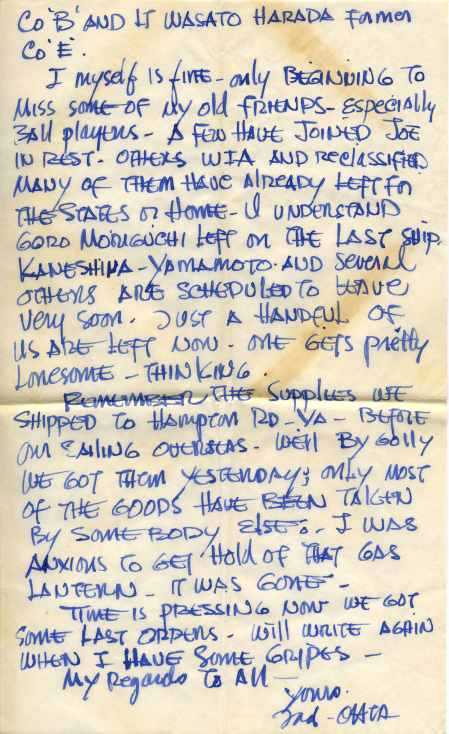 Co 'B' AND Lt WASATO HARADA Former
Co 'E'.
I myself is fine - only BEGINNING TO
MISS some OF My old FRIENDS - especially
Ball players - A FEW HAVE JOINED JOE
IN REST - OTHERS WIA AND Reclassified
MANY OF THEM HAVE ALREADY LEFT For
THE STATES or Home - I UNDERSTAND
GORO MORIGUCHI LEFT on THE LAST SHIP.
KANESHINA - YAMAMOTO - AND several
OTHERS ARE SCHEDULED TO LEAVE
very soon. JUST A HANDFUL OF
US ARE LEFT NOW - ONE GETS pretty
Lonesome - THINKING.
REMEMBER THE SUPPLIES WE
SHIPPED TO HAMPTON RD - VA - BEFORE
our SAILING OVERSEAS - Well By Golly
WE GOT THEM YESTERDAY; only MOST
OF THE GOODS HAVE BEEN TAKEN
By SOMEBODY ELSE. I WAS
ANXIOUS TO GET Hold OF THAT GAS
LANTERN - IT WAS GONE -
TIME IS PRESSING NOW WE GOT
SOME LAST ORDERS - Will WRITE AGAIN
WHEN I HAVE SOME GRIPES -
My Regards To All -
yours.